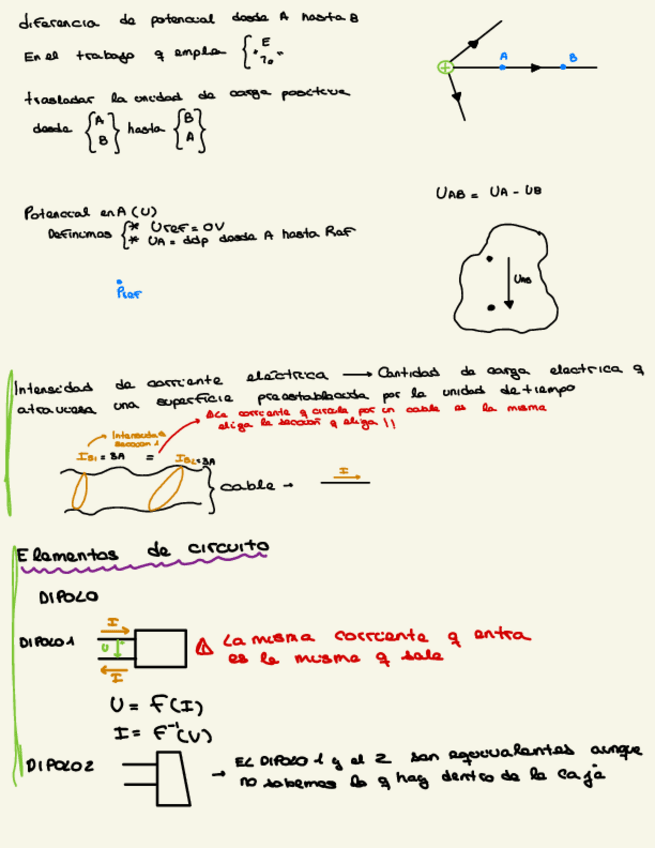 diferencia de potencial desde A hasta B
En el trabajo q emplea { · E
· no "
trasladar la unidad de carga positiva
desde {A B} hasta {B A}
A B
Potencial en A (U)
Definimos { * Uref = 0V
* UA = ddp desde A hasta Ref
Pref
UAB = UA - UB
UAB
Intensidad de corriente eléctrica → Cantidad de carga electrica q
atraviesa una superficie preestablecida por la unidad de tiempo
⚠ La corriente q circula por un cable es la misma
eliga la sección q eliga !!
Intensidad
sección 1
IS1 = 3A = IS2 = 3A
cable → I
Elementos de circuito
DIPOLO
DIPOLO 1 I U I
⚠ La misma corriente q entra
es la misma q sale
U = f(I)
I = f⁻¹(U)
DIPOLO 2 → EL DIPOLO 1 y el 2 son equivalentes aunque
no sabemos lo q hay dentro de la caja